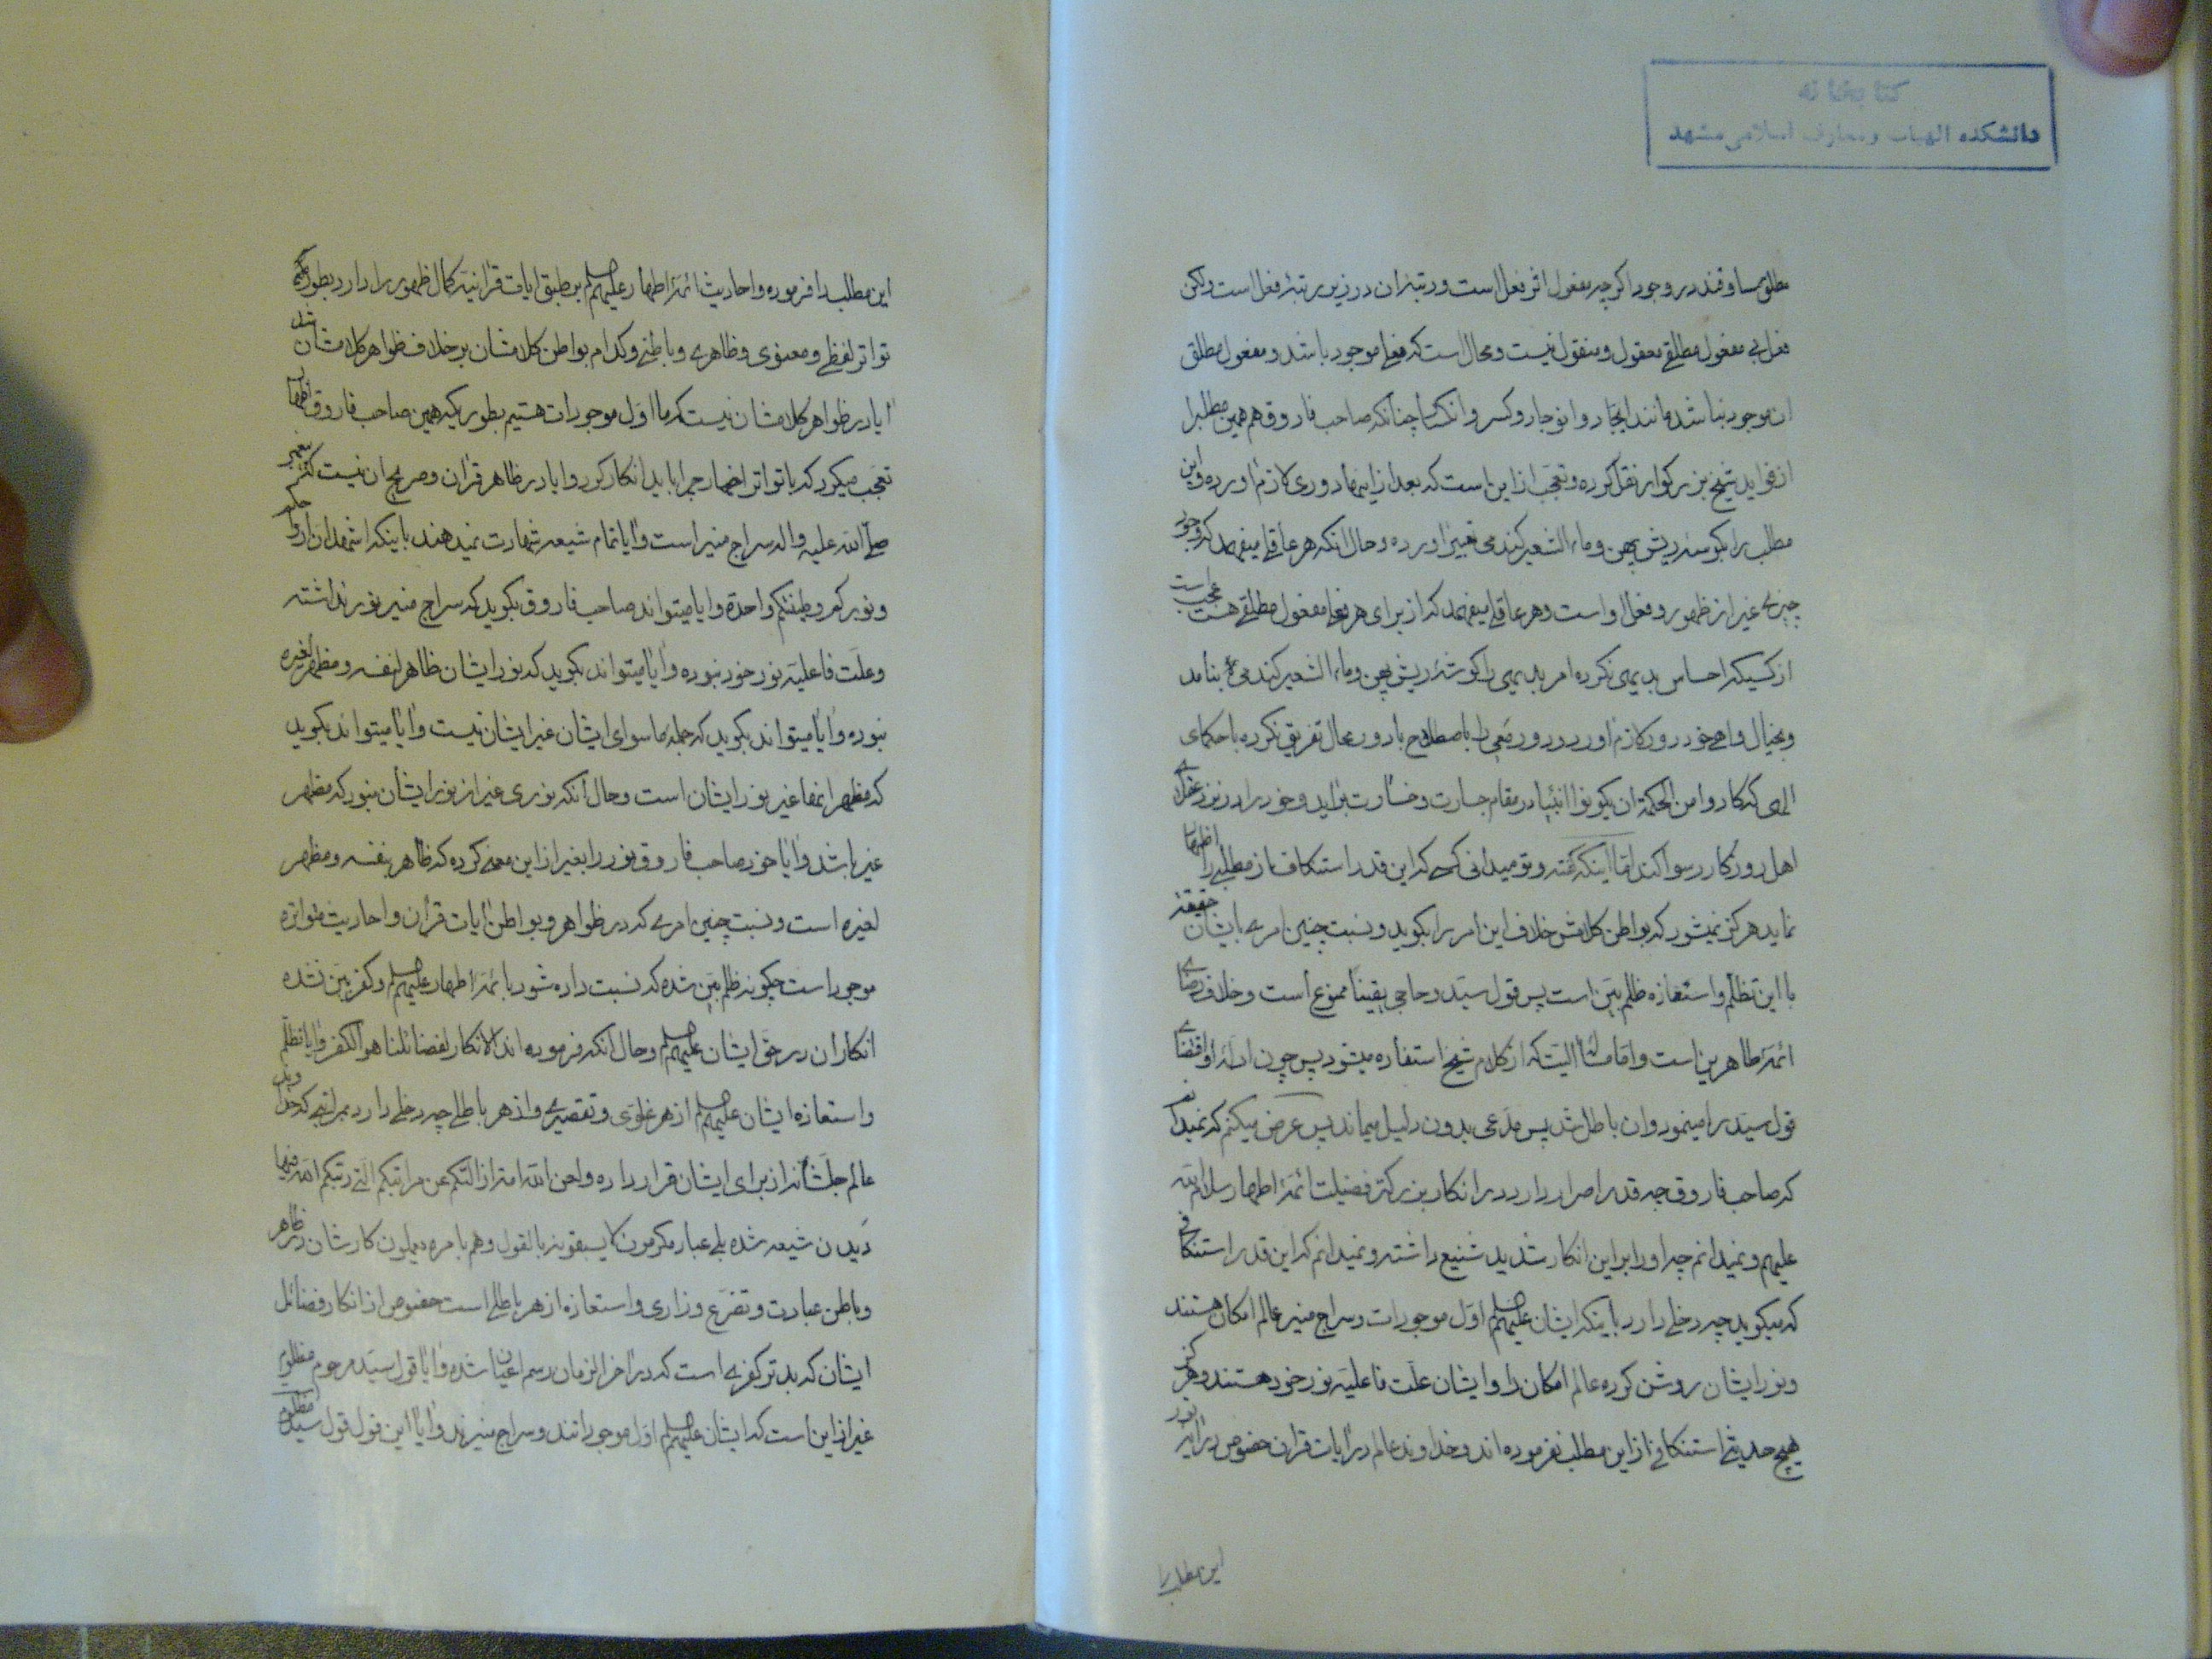 کتابخانه
دانشکده الهیات ومعارف اسلامی مشهد
مطلق مساوقند در وجود اکرچه مفعول اثر فعل است ورتبه ان در زیر رتبهٔ فعل است ولکن
فعل بی مفعول مطلق معقول ومنقول نیست ومحال است که فعلی موجود باشد ومفعول مطلق
ان موجود نباشد مانند ایجاد وانوجاد وکسر وانکسار چنانکه صاحب فاروق هم همین مطلب را
از فواید شیخ بزرکوار نقل کرده وتعجب از این است که بعد از اینها دوری لازم اورده واین
مطلب را بکوسهٔ ریش پهن وماء الشعیر کندمی تعبیر اورده وحال انکه هر عاقلی میفهمد که وجود
چیزی غیر از ظهور وفعل او است وهر عاقلی میفهمد که از برای هر فعلی مفعول مطلقی هست عجب است
از کسیکه احساس بدیهی نکرده امر بدیهی را کوسهٔ ریش پهن وماء الشعیر کندمی بنامد
وبخیال واهی خود دور لازم اورد ودور معی را باصطلاح با دور محال تفریق نکرده با حکمای
الهی که کادوا من الحکمة ان یکونوا انبیاء در مقام جسارت وخسارت براید وخود را در نزد عقلای
اهل روزکار رسوا کند اما اینکه کفته وتو میدانی کسی که این قدر استنکاف از مطلبی را اظهار
نماید هرکز نمیشود که بواطن کلامش خلاف این امر را بکوید ونسبت چنین امری بایشان حقیقة
با این تظلم واستعاذه ظلم بیّن است پس قول سیّد وحاجی یقیناً ممنوع است وخلاف رضای
ائمهٔ طاهرین است واما مسئلهٔ الیت که از کلام شیخ استفاده میشود پس چون ادلهٔ او اقتضای
قول سیّد را مینمود وان باطل شد پس مدّعی بدون دلیل میماند پس عرض میکنم که نمیدانم
که صاحب فاروق چه قدر اصرار دارد در انکار بزرکتر فضیلت ائمهٔ اطهار سلام الله
علیهم ونمیدانم چه او را بر این انکار شدید شنیع داشته ونمیدانم که این قدر استنکافی
که میکوید چه دخلی دارد باینکه ایشان علیهم السلام اوّل موجودات وسراج منیر عالم امکان هستند
ونور ایشان روشن کرده عالم امکان را وایشان علّت فاعلیّه نور خود هستند وهرکز
هیچ حدیثی استنکافی از این مطلب نفرموده اند وخداوند عالم در ایات قران خصوص در ایهٔ نور
این مطلب را
این مطلب را فرموده واحادیث ائمّهٔ اطهار علیهم السلام بر طبق ایات قرانیّه کمال ظهور را دارد بطور حکم
تواتر لفظی ومعنوی وظاهری وباطنی وکدام بواطن کلامشان بر خلاف ظواهر کلامشان شد
ایا در ظواهر کلامشان نیست که ما اوّل موجودات هستیم بطوریکه همین صاحب فاروق اظهار
تعجّب میکرد که با تواتر اخبار چرا باید انکار کرد وایا در ظاهر قران وصریح ان نیست که پیغمبر
صلی الله علیه واله سراج منیر است وایا تمام شیعه شهادت نمیدهند باینکه اشهد ان ارواحکم
ونورکم وطینتکم واحدة وایا میتواند صاحب فاروق بکوید که سراج منیر نور نداشته
وعلّت فاعلیّه نور خود نبوده وایا میتواند بکوید که نور ایشان ظاهر لنفسه ومظهر لغیره
نبوده وایا میتواند بکوید که جملهٔ ما سوای ایشان غیر ایشان نیست وایا میتواند بکوید
که مظهر انها غیر نور ایشان است وحال آنکه نوری غیر از نور ایشان نبود که مظهر
غیر باشد وایا خود صاحب فاروق نور را بغیر از این معنی کرده که ظاهر بنفسه ومظهر
لغیره است ونسبت چنین امری که در ظواهر وبواطن ایات قران واحادیث متواتره
موجود است چکونه ظلم بیّن شده که نسبت داده شود بائمّهٔ اطهار علیهم السلام وکفر بیّن نشده
انکار ان در حقّ ایشان علیهم السلام وحال انکه فرموده اند الانکار لفضائلنا هو الکفر وایا تظلّم
واستعاذه ایشان علیهم السلام از هر غلوّی وتقصیری واز هر باطلی چه دخلی دارد بمراتبی که خداوند
عالم جلّ شانه از برای ایشان قرار داده ولعن الله امة ازالتکم عن مراتبکم الّتی رتبکم الله فیها
دیدن شیعه شده بلی عباد مکرمون لا یسبقونه بالقول وهم بامره یعملون کارشان در ظاهر
وباطن عبادت وتضرّع وزاری واستعاذه از هر باطلی است خصوص از انکار فضائل
ایشان که بدتر کفری است که در اخر الزمان رسم اعیان شده وایا قول سیّد مرحوم مظلوم
غیر از این است که ایشان علیهم السلام اوّل موجوداتند وسراج منیرند وایا این قول قول سیّد مظلوم